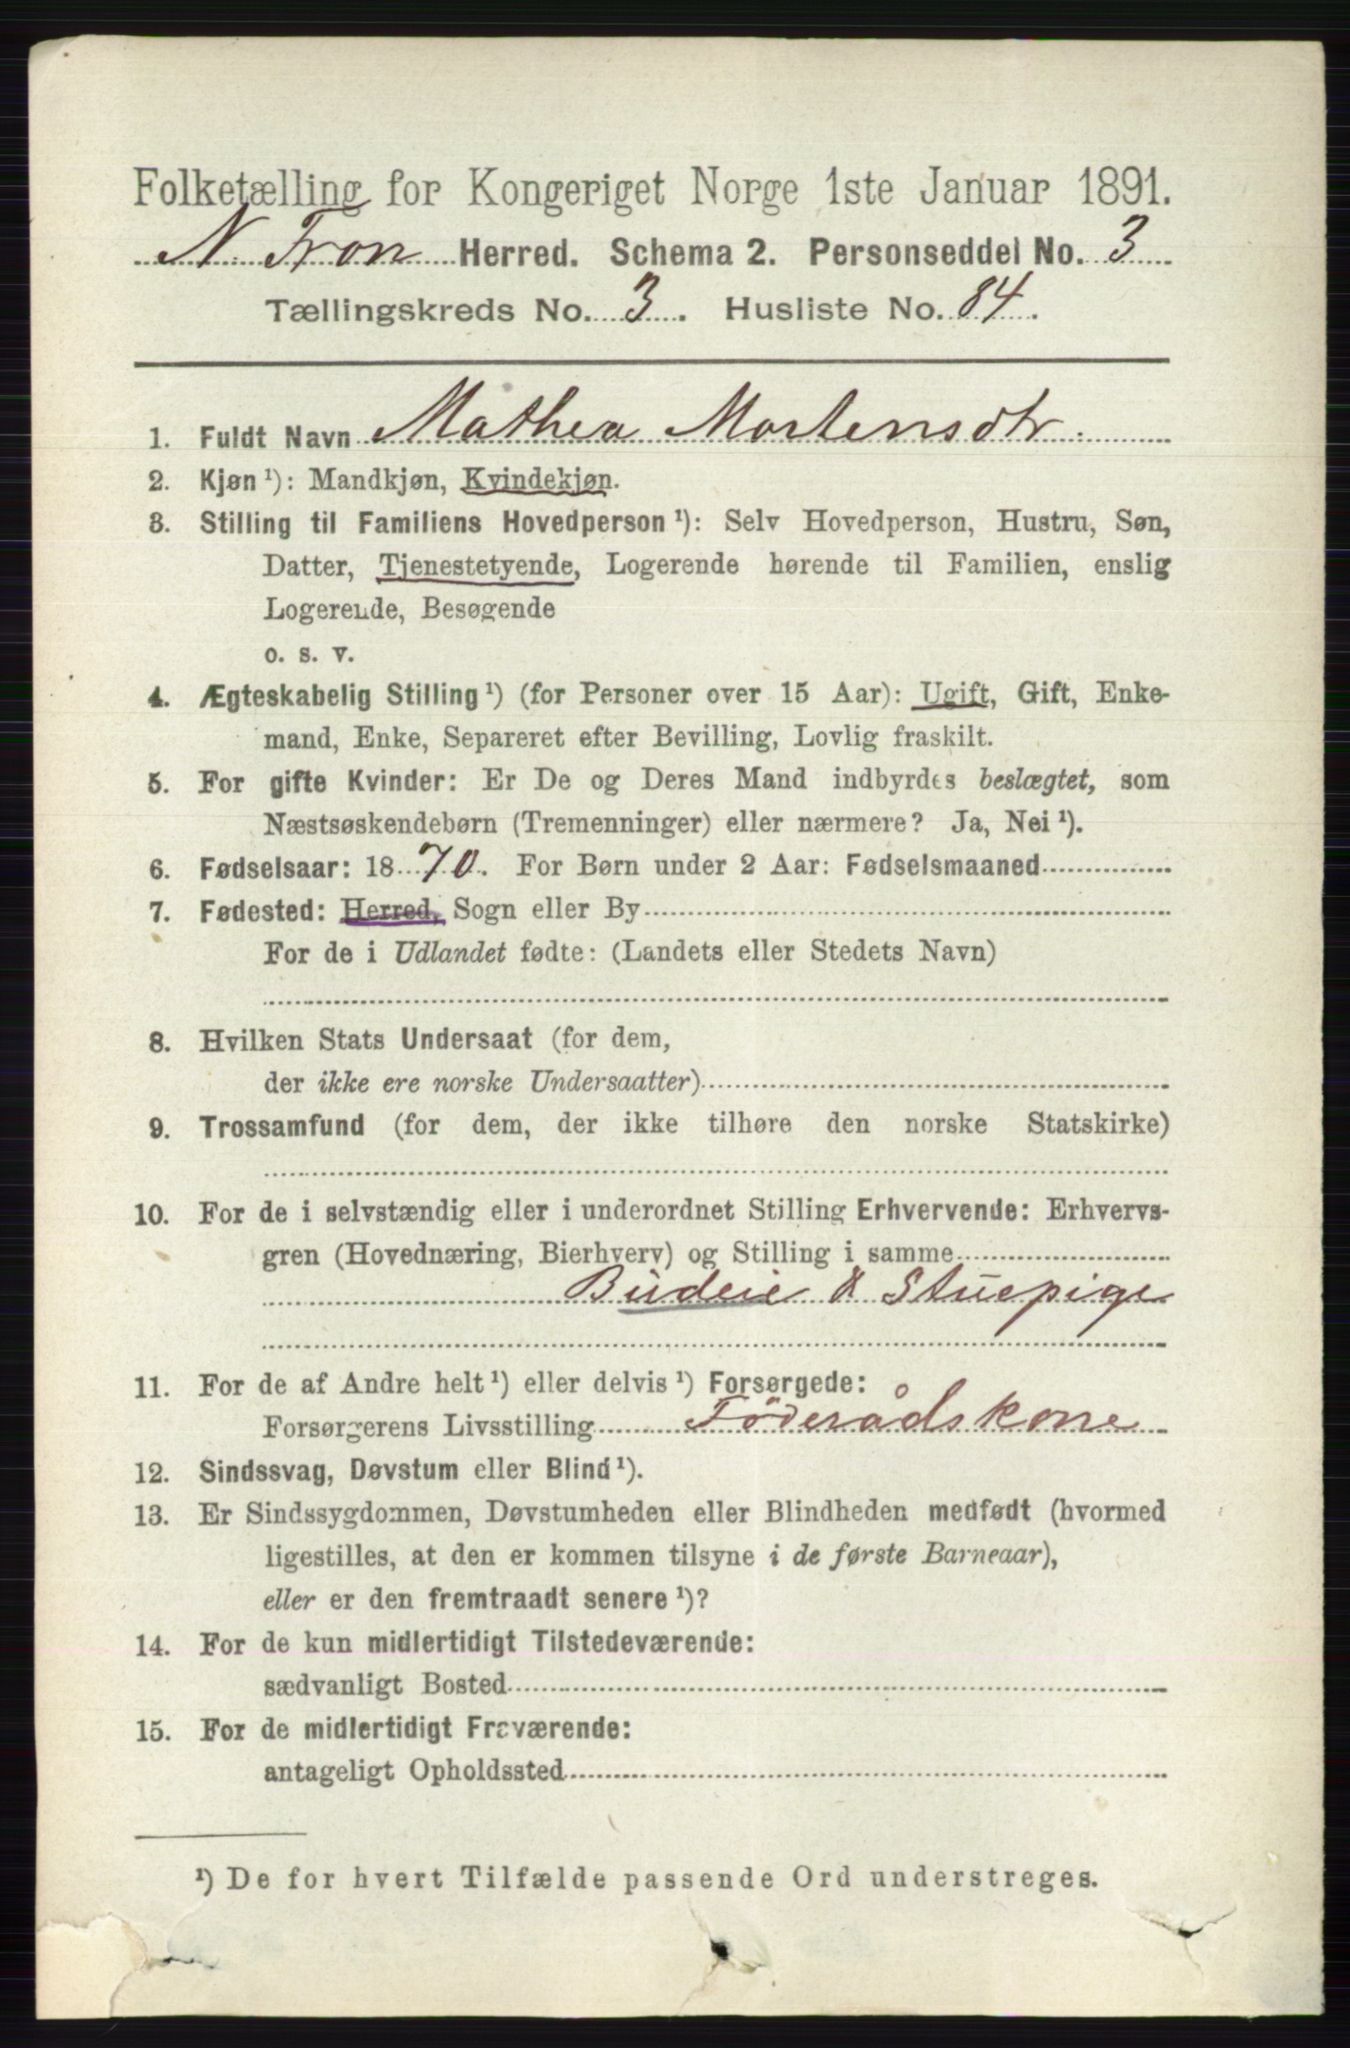 Folketælling for Kongeriget Norge 1ste Januar 1891.
N. Fron Herred. Schema 2. Personseddel No. 3
Tællingskreds No. 3. Husliste No. 84.
1. Fuldt Navn Mathea Mortensdtr.
2. Kjøn ¹): Mandkjøn, Kvindekjøn.
3. Stilling til Familiens Hovedperson ¹): Selv Hovedperson, Hustru, Søn,
Datter, Tjenestetyende, Logerende hørende til Familien, enslig
Logerende, Besøgende
o. s. v.
4. Ægteskabelig Stilling ¹) (for Personer over 15 Aar): Ugift, Gift, Enke-
mand, Enke, Separeret efter Bevilling, Lovlig fraskilt.
5. For gifte Kvinder: Er De og Deres Mand indbyrdes beslægtet, som
Næstsøskendebørn (Tremenninger) eller nærmere? Ja, Nei ¹).
6. Fødselsaar: 1870. For Børn under 2 Aar: Fødselsmaaned
7. Fødested: Herred, Sogn eller By
For de i Udlandet fødte: (Landets eller Stedets Navn)
8. Hvilken Stats Undersaat (for dem,
der ikke ere norske Undersaatter)
9. Trossamfund (for dem, der ikke tilhøre den norske Statskirke)
10. For de i selvstændig eller i underordnet Stilling Erhvervende: Erhvervs-
gren (Hovednæring, Bierhverv) og Stilling i samme
Budeie & Stuepige
11. For de af Andre helt ¹) eller delvis ¹) Forsørgede:
Forsørgerens Livsstilling Föderådskone
12. Sindssvag, Døvstum eller Blind ¹).
13. Er Sindssygdommen, Døvstumheden eller Blindheden medfødt (hvormed
ligestilles, at den er kommen tilsyne i de første Barneaar),
eller er den fremtraadt senere ¹)?
14. For de kun midlertidigt Tilstedeværende:
sædvanligt Bosted
15. For de midlertidigt Fraværende:
antageligt Opholdssted
¹) De for hvert Tilfælde passende Ord understreges.